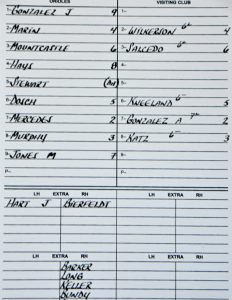 ORIOLES VISITING CLUB
1- GONZALEZ J 9 1-
2- MARIN 4 2- WILKERSON 6th 4
3- MOUNTCASTLE 6 3- SALCEDO 6th 6
4- HAYS 8 4-
5- STEWART (DH) 5-
6- DOSCH 5 6- KNEELAND 6th 5
7- MERCEDES 2 7- GONZALEZ A 7th 2
8- MURPHY 3 8- KATZ 6th 3
9- JONES M 7 9-
P- P-
LH EXTRA RH LH EXTRA RH
HART J BIERFELDT
LH EXTRA RH LH EXTRA RH
BARKER
LONG
KELLER
BUNDY